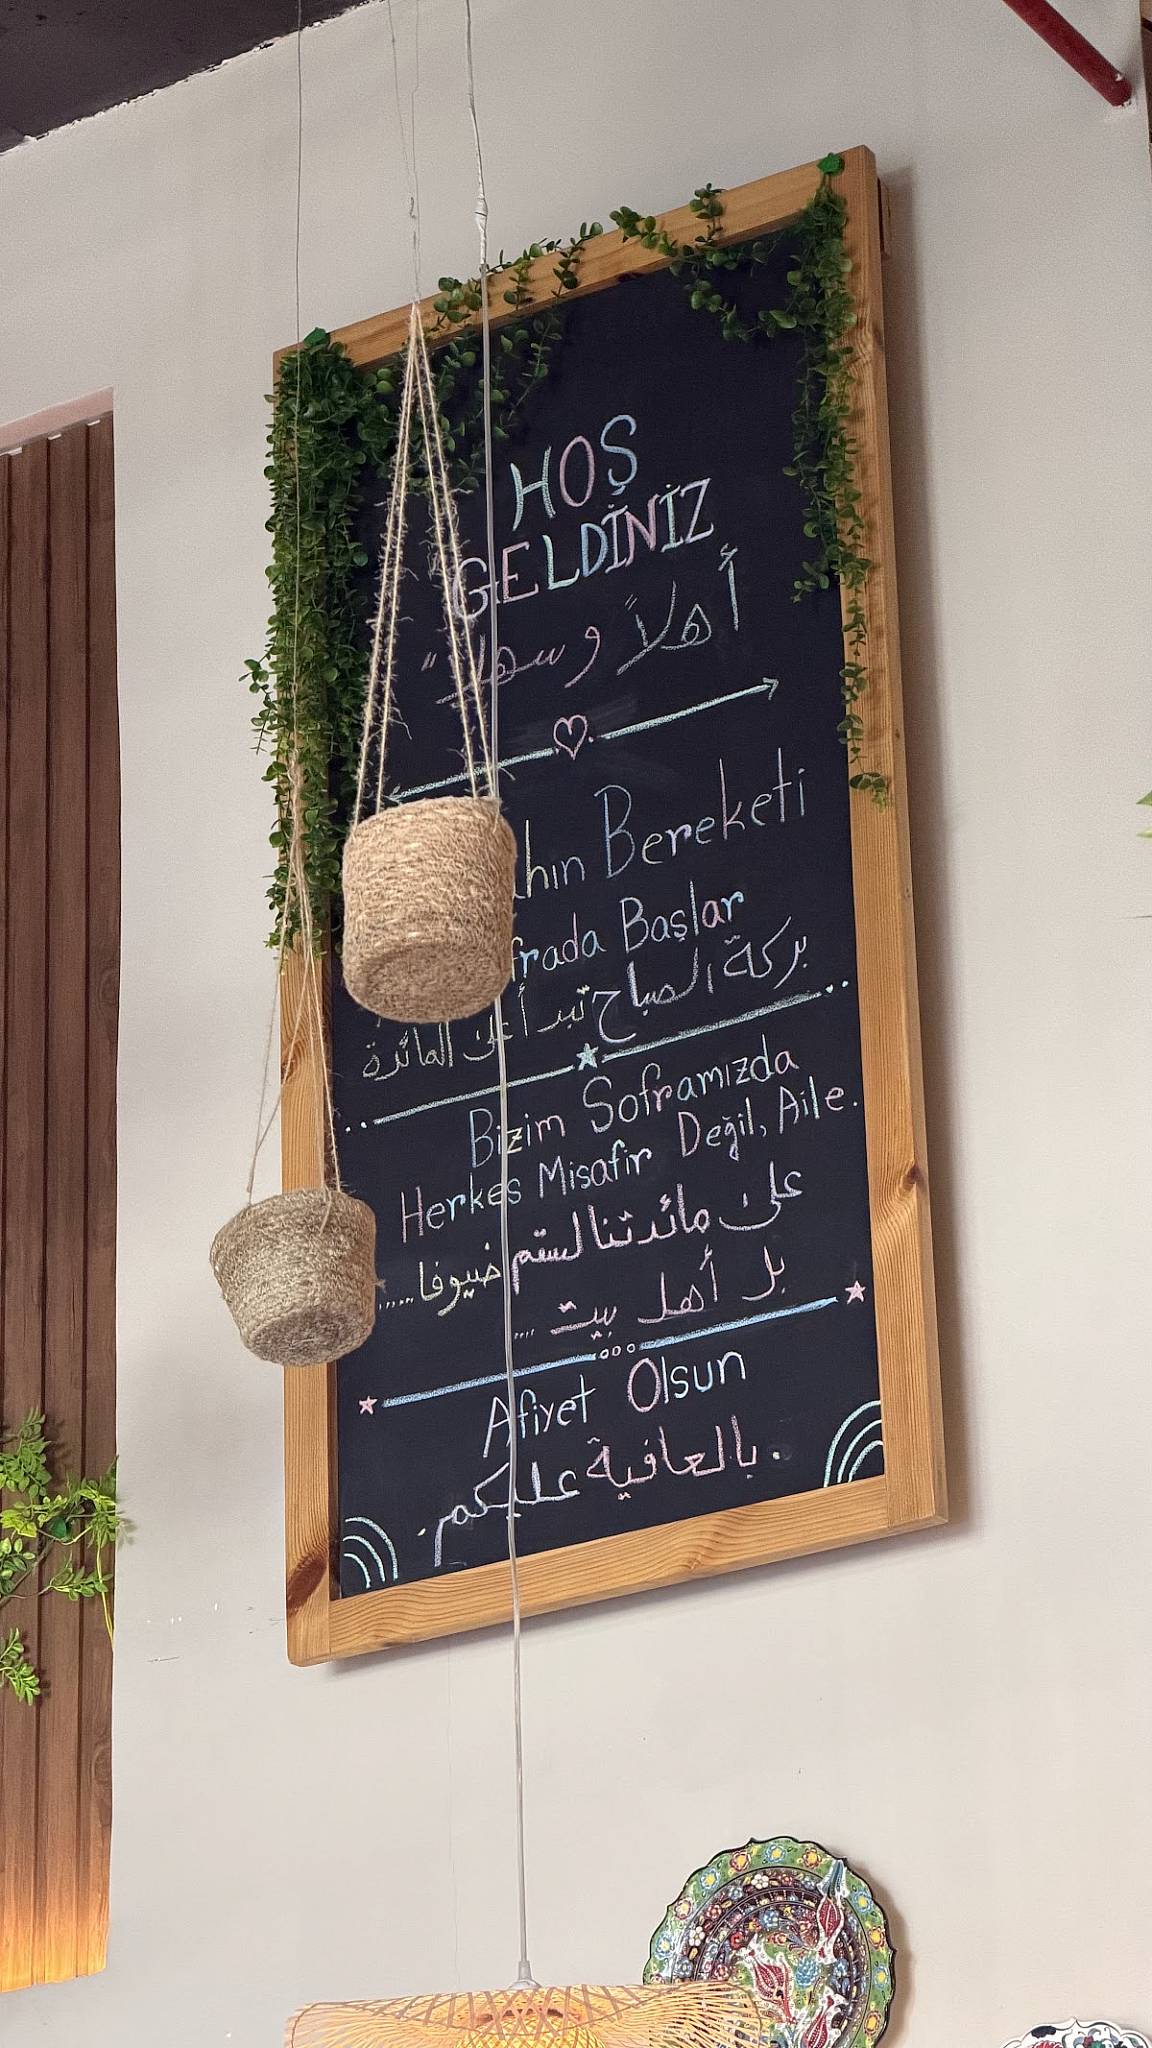 HOŞ
GELDİNİZ
أهلاً و سهلاً
Bereketi
Başlar
بركة الصباح تبدأ على المائدة
Bizim Soframızda
Herkes Misafir Değil, Aile.
على مائدتنا لستم ضيوفا......
بل أهل بيت ....
Afiyet Olsun
بالعافية عليكم.